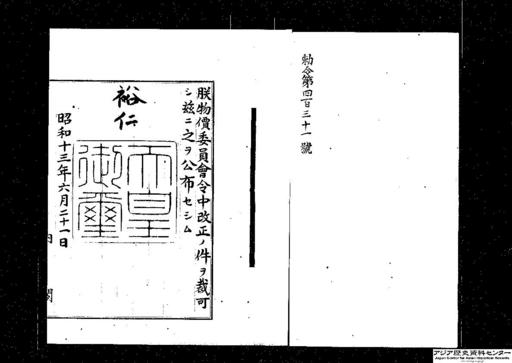 勅令第四百三十一號
朕物價委員會令中改正ノ件ヲ裁可
シ玆ニ之ヲ公布セシム
裕仁
天皇
御璽
昭和十三年六月二十一日
内閣
アジア歴史資料センター
Japan Center for Asian Historical Records